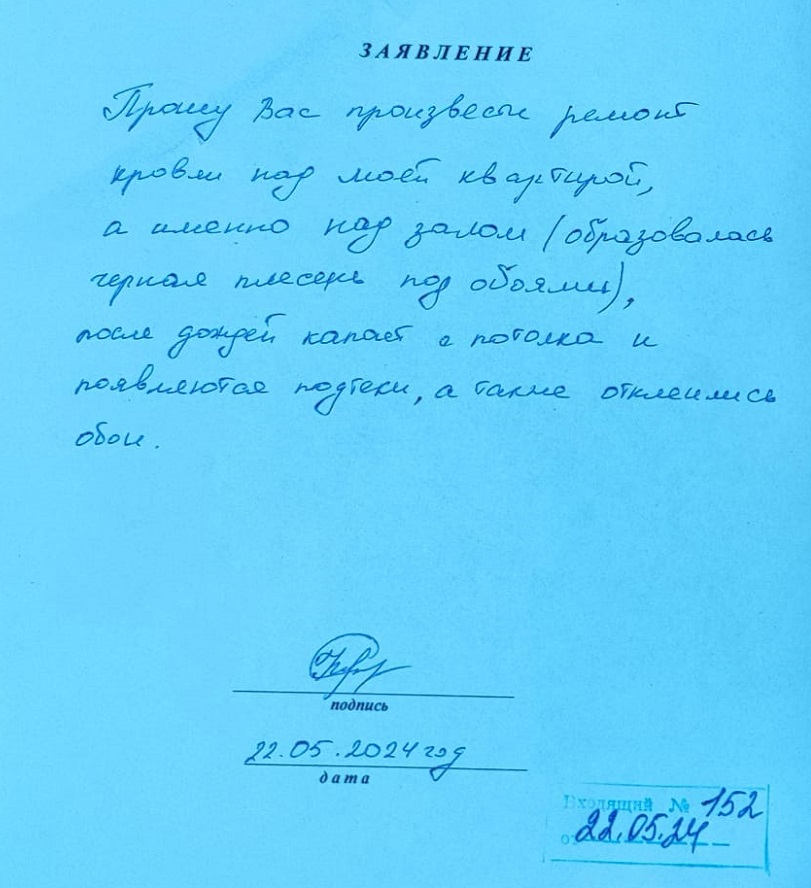 ЗАЯВЛЕНИЕ
Прошу Вас произвести ремонт
кровли над моей квартирой,
а именно над залом (образовалась
черная плесень под обоями),
после дождей капает с потолка и
появляются подтеки, а также отклеились
обои.
подпись
22.05.2024 год
дата
Входящий № 152
от 22.05.24